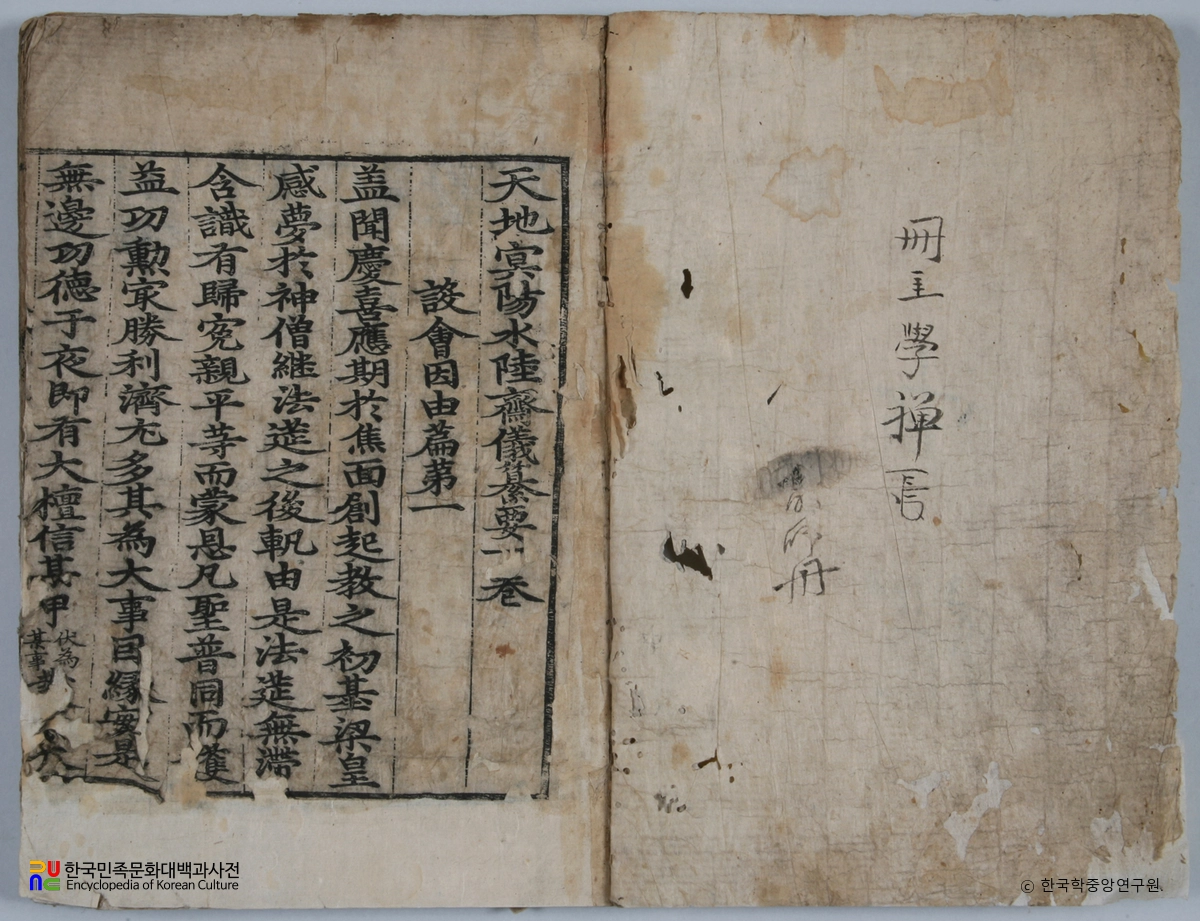 冊主學禪長
冊
天地㝠陽水陸齋儀纂要一卷
設會因由篇第一
盖聞慶喜應期於焦面創起教之初基梁皇
感夢於神僧継法筵之後軓由是法筵無滯
含識有歸寃親平等而蒙恩凡聖普同而獲
益功勳冣勝利濟尤多其為大事因縁寔是
無邊功德子夜即有大檀信某甲
伏為
某事
한국민족문화대백과사전
Encyclopedia of Korean Culture
© 한국학중앙연구원